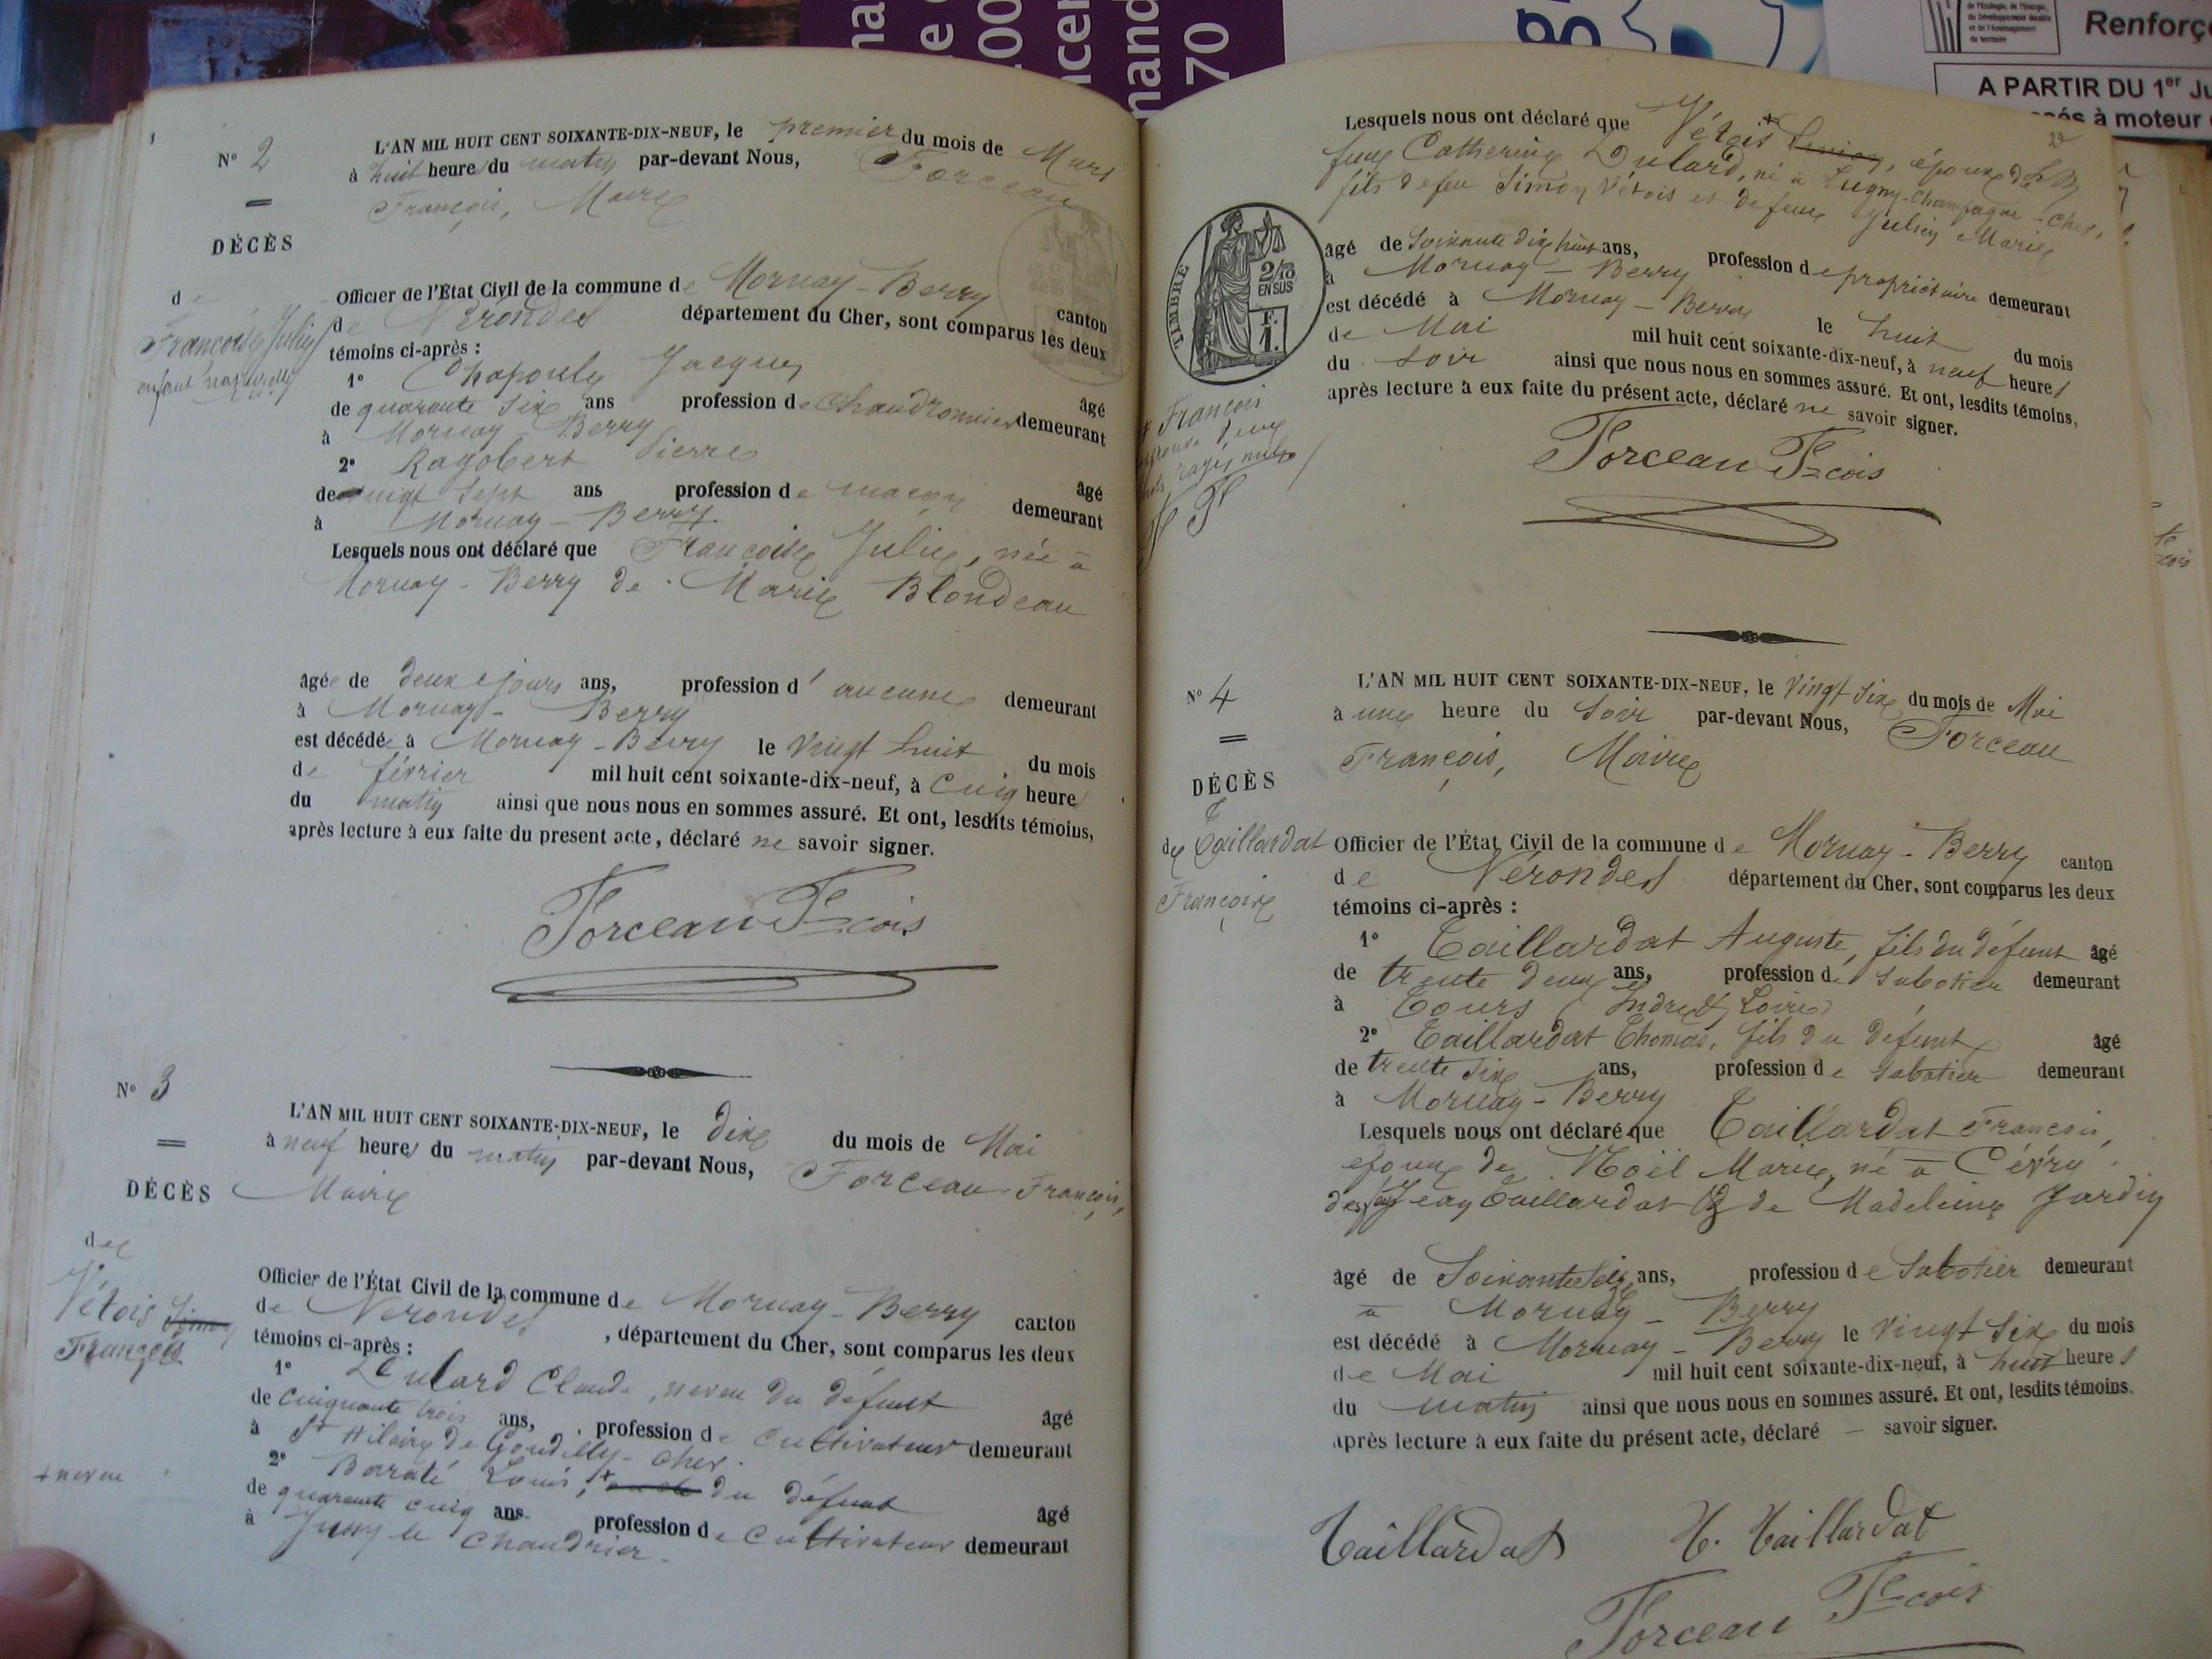 Renforç
A PARTIR DU 1er Ju
à moteur
70
N° 2
DÉCÈS
de
Françoise Julie
enfant naturelle
L'AN MIL HUIT CENT SOIXANTE-DIX-NEUF, le premier du mois de Mars
à huit heures du matin par-devant Nous, Forceau
François, Maire
Officier de l'État Civil de la commune de Mornay-Berry canton
de Nérondes département du Cher, sont comparus les deux
témoins ci-après :
1° Jacques âgé
de quarante six ans profession de chaudronnier demeurant
à Mornay-Berry
2° Ragobert Pierre âgé
de vingt sept ans profession de maçon demeurant
à Mornay-Berry
Lesquels nous ont déclaré que Françoise Julie, née à
Mornay-Berry de Marie Blondeau
âgée de deux jours ans, profession d'aucune demeurant
à Mornay-Berry
est décédée à Mornay-Berry le vingt huit du mois
de février mil huit cent soixante-dix-neuf, à cinq heures
du matin ainsi que nous nous en sommes assuré. Et ont, lesdits témoins,
après lecture à eux faite du present acte, déclaré ne savoir signer.
Forceau Fcois
N° 3
DÉCÈS
de
Vétois Simon
François
L'AN MIL HUIT CENT SOIXANTE-DIX-NEUF, le dix du mois de Mai
à neuf heures du matin par-devant Nous, Forceau François,
Maire
Officier de l'État Civil de la commune de Mornay-Berry canton
de Nérondes, département du Cher, sont comparus les deux
témoins ci-après :
1° Dulard Claude, neveu du défunt âgé
de cinquante trois ans, profession de cultivateur demeurant
à St Hilaire de Gondilly-Cher.
+ neveu
2° Baraté Louis, + du défunt âgé
de quarante cinq ans profession de cultivateur demeurant
à Jussy le Chaudrier.
Lesquels nous ont déclaré que Vétois + Simon, époux de
feue Catherine Dulard, né à Lugny-Champagne-Cher,
fils de feu Simon Vétois et de feue Marie
TIMBRE
2/10
EN SUS
F.
1.
âgé de soixante dix huit ans, profession de propriétaire demeurant
à Mornay-Berry
est décédé à Mornay-Berry le huit du mois
de Mai mil huit cent soixante-dix-neuf, à neuf heures
du soir ainsi que nous nous en sommes assuré. Et ont, lesdits témoins,
après lecture à eux faite du présent acte, déclaré ne savoir signer.
+ François
mots rayés nuls
Forceau Fcois
N° 4
DÉCÈS
de Taillardat
François
L'AN MIL HUIT CENT SOIXANTE-DIX-NEUF, le vingt six du mois de Mai
à une heure du soir par-devant Nous, Forceau
François, Maire
Officier de l'État Civil de la commune de Mornay-Berry canton
de Nérondes département du Cher, sont comparus les deux
témoins ci-après :
1° Taillardat Auguste, fils du défunt âgé
de trente deux ans, profession de sabotier demeurant
à Tours (Indre et Loire)
2° Taillardat Thomas, fils du défunt âgé
de trente six ans, profession de sabotier demeurant
à Mornay-Berry
Lesquels nous ont déclaré que Taillardat François,
époux de Noël Marie, né à
Jean Taillardat & de Madeleine Jardin
âgé de ans, profession de sabotier demeurant
à Mornay-Berry
est décédé à Mornay-Berry le vingt six du mois
de Mai mil huit cent soixante-dix-neuf, à huit heures
du matin ainsi que nous nous en sommes assuré. Et ont, lesdits témoins.
après lecture à eux faite du présent acte, déclaré — savoir signer.
Taillardat T. Taillardat
Forceau Fcois